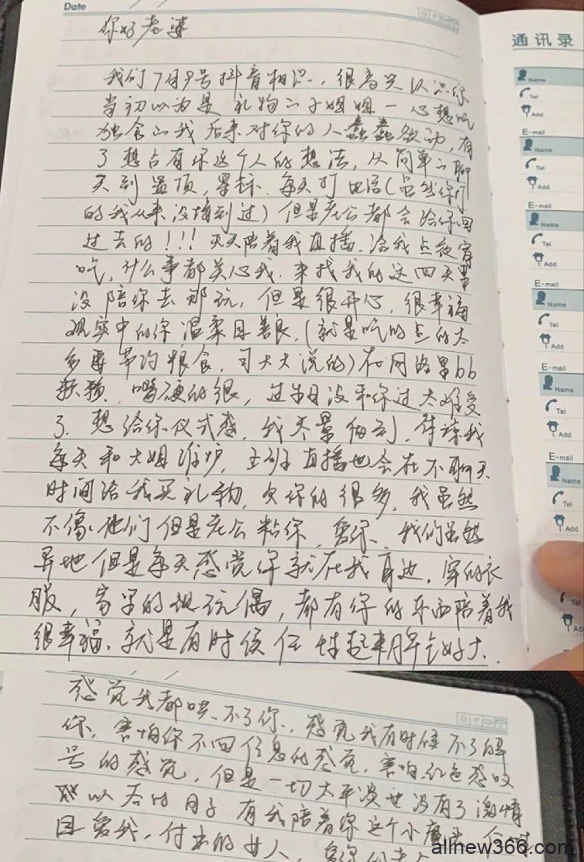 Date
你好老婆
通讯录
我们7月9号抖音相识，很高兴认识你
当初以为是礼物小姐姐一心想吃
独食的我后来对你的人蠢蠢欲动，有
了想占有你这个人的想法，从简单的聊
天到置顶，置标、每天打电话(虽然你打
的我从来没接到过)但是老公都会给你回
过去的！！！天天陪着我直播、给我点夜宵
吃，什么事都关心我、来找我的这四天里
没陪你去哪玩，但是很开心，很幸福
现实中的你温柔且善良，(就是吃的点的太
多要节约粮食，司大大说的)在网络里bb
嘴硬的很，过生日没和你过太难受
了、想给你仪式感，我尽量做到，体谅我
每天和大姐维护，上班直播也会在不聊天
时间给我买礼物，欠你的很多，我虽然
不像他们但是老公粘你，爱你、我们虽然
异地但是每天感觉你就在我身边，穿的衣
服，家里的玩偶，都有你的东西陪着我
很幸福、就是有时候任性起来脾气好大.
感觉我都哄不了你、感觉我有时候不了解
你、害怕你不回信息的感觉，害怕红色感叹
号的感觉，但是一切太平淡也没有了激情
以后的日子有我陪着你这个小魔头
且爱我，付出的女人，爱你的老公
Name
Tel
Add
E-mail
Name
Tel
Add
E-mail
Name
Tel
Add
E-mail
Name
Tel
Add
E-mail
Name
Tel
Add
E-mail
Name
Tel
Add
allnew366.com